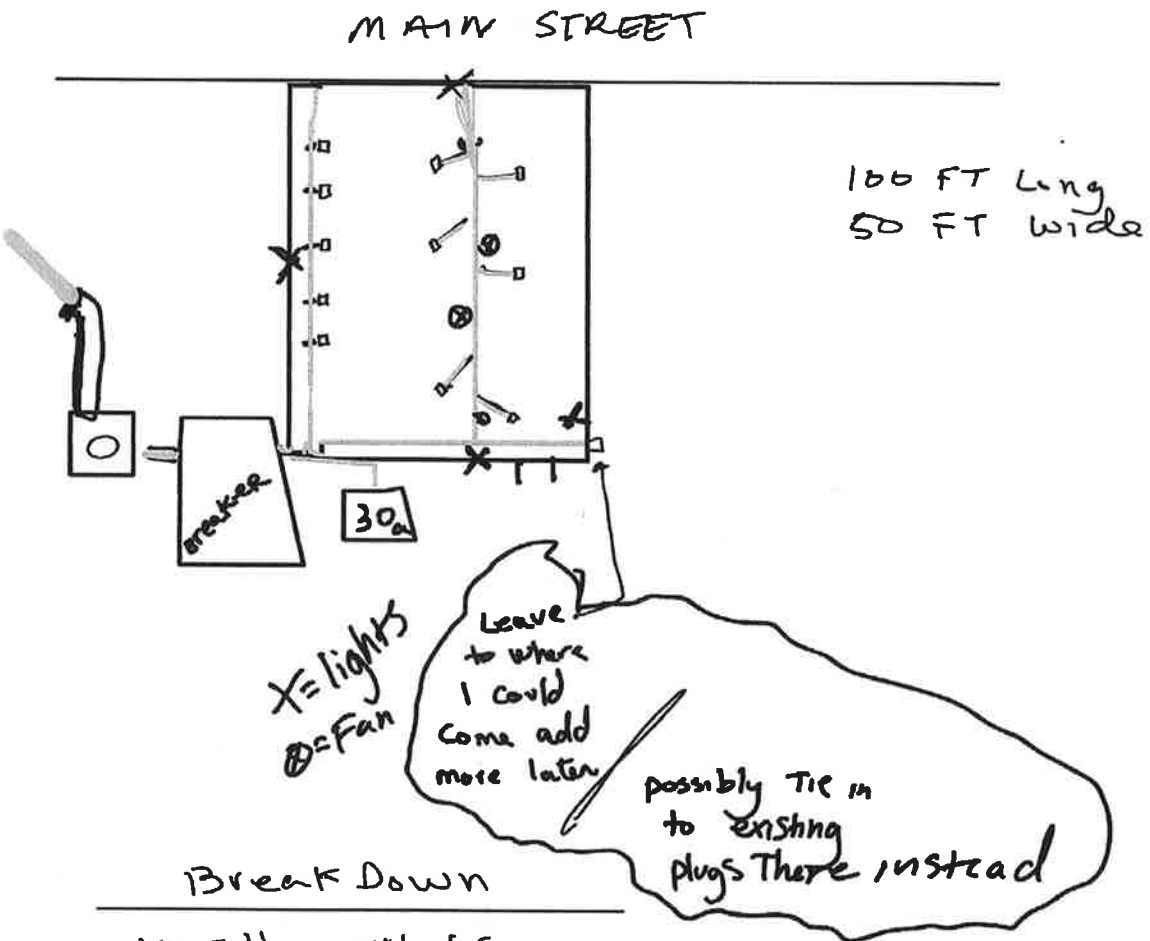 MAIN STREET
100 FT Long
50 FT wide
Breaker
30a
X=lights
⊗=Fan
Leave
to where
I could
come add
more later
possibly Tie in
to existing
plugs There instead
Break Down